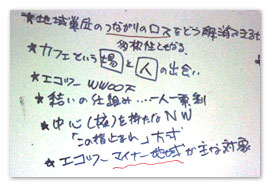 ★地域単位のつながりのロスをどう解消できるか
多様性ともなる
★カフェという場と人の出会い
★エコツー WWOOF
★結いの仕組み……一人一票制
★中心(核)を持たないNW
「この指止まれ」方式
★エコツー マイナー地域が主な対象